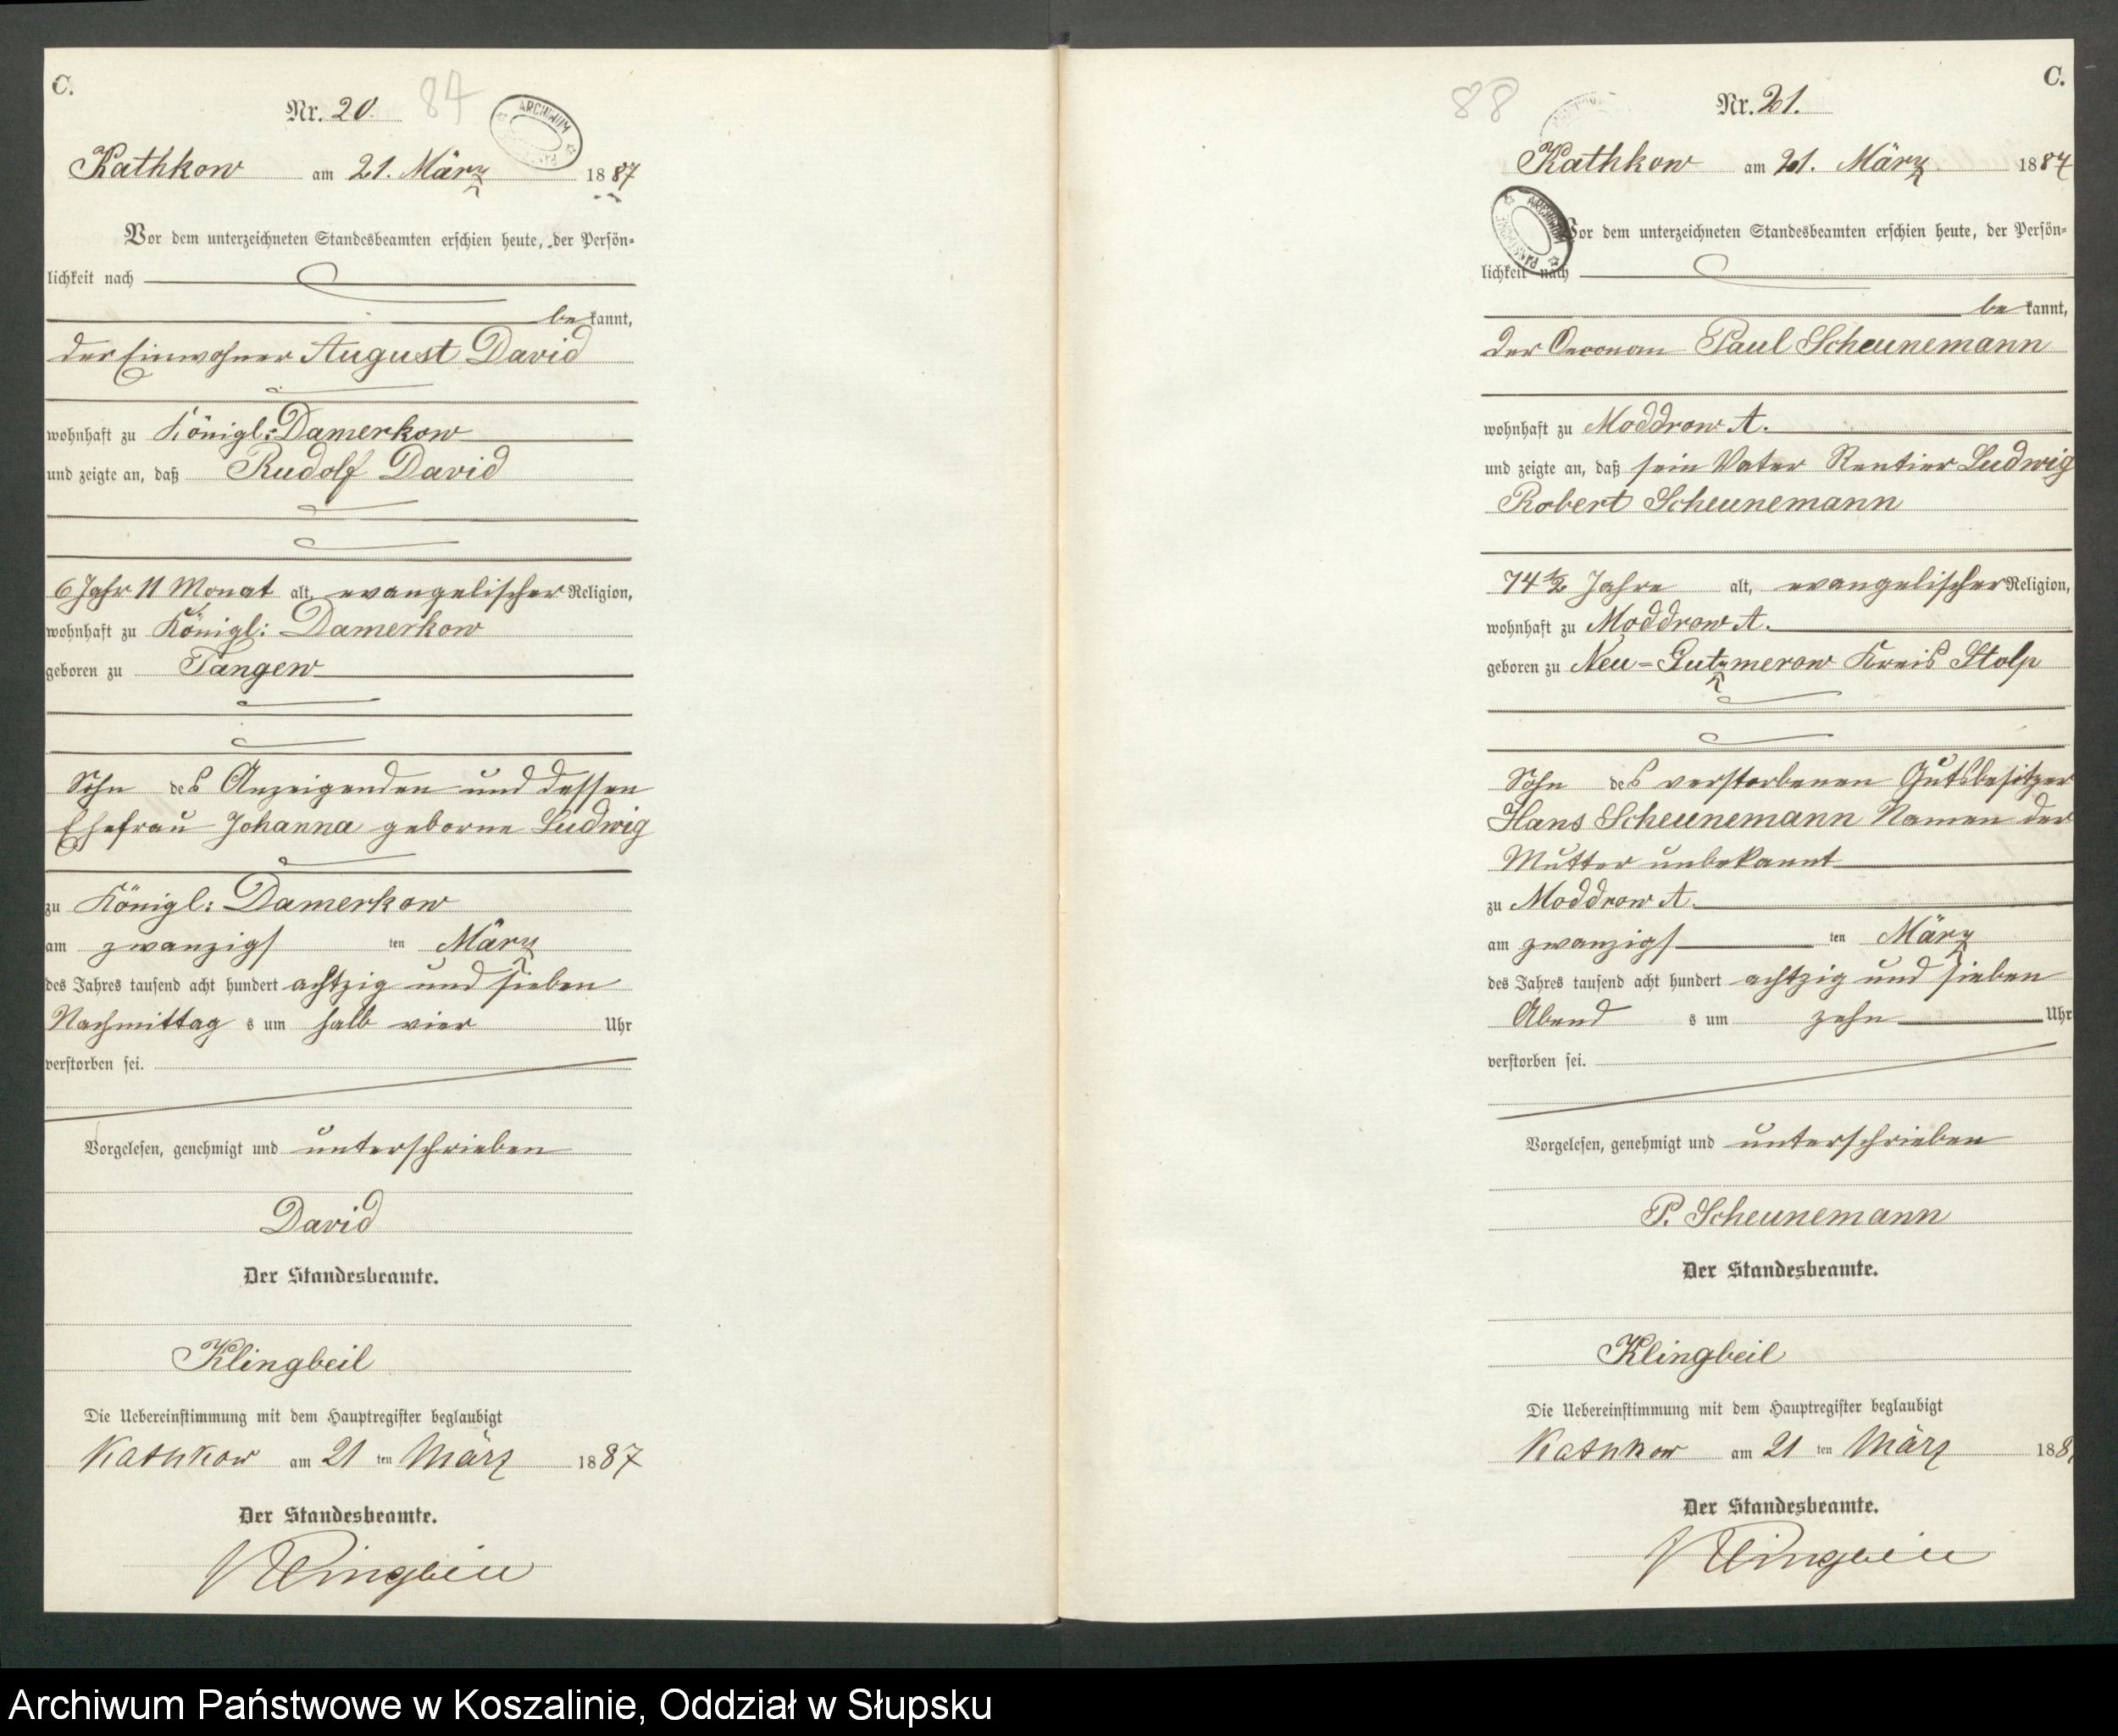 C.
Nr. 20.
87
ARCHIWUM
Kathkow am 21. März 1887
Vor dem unterzeichneten Standesbeamten erschien heute, der Persön-
lichkeit nach
be kannt,
der Einwohner August David
wohnhaft zu Königl: Damerkow
und zeigte an, daß Rudolf David
6 Jahr 11 Monat alt, evangelischer Religion,
wohnhaft zu Königl: Damerkow
geboren zu Tangen
Sohn des Anzeigenden und dessen
Ehefrau Johanna geborne Ludwig
zu Königl: Damerkow
am zwanzigs ten März
des Jahres tausend acht hundert achtzig und sieben
Nachmittag s um halb vier Uhr
verstorben sei.
Vorgelesen, genehmigt und unterschrieben
David
Der Standesbeamte.
Klingbeil
Die Uebereinstimmung mit dem Hauptregister beglaubigt
Kathkow am 21 ten März 1887
Der Standesbeamte.
Klingbeil
C.
88
Nr. 21.
Kathkow am 21. März 1887
ARCHIWUM PAŃSTWOWE
Vor dem unterzeichneten Standesbeamten erschien heute, der Persön-
lichkeit nach
be kannt,
der Oeconom Paul Scheunemann
wohnhaft zu Moddrow A.
und zeigte an, daß sein Vater Rentier Ludwig
Robert Scheunemann
74 1/2 Jahre alt, evangelischer Religion,
wohnhaft zu Moddrow A.
geboren zu Neu-Gutzmerow Kreis Stolp
Sohn des verstorbenen Gutsbesitzer
Hans Scheunemann Namen der
Mutter unbekannt
zu Moddrow A.
am zwanzigs ten März
des Jahres tausend acht hundert achtzig und sieben
Abend s um zehn Uhr
verstorben sei.
Vorgelesen, genehmigt und unterschrieben
P. Scheunemann
Der Standesbeamte.
Klingbeil
Die Uebereinstimmung mit dem Hauptregister beglaubigt
Kathkow am 21 ten März 188
Der Standesbeamte.
Klingbeil
Archiwum Państwowe w Koszalinie, Oddział w Słupsku